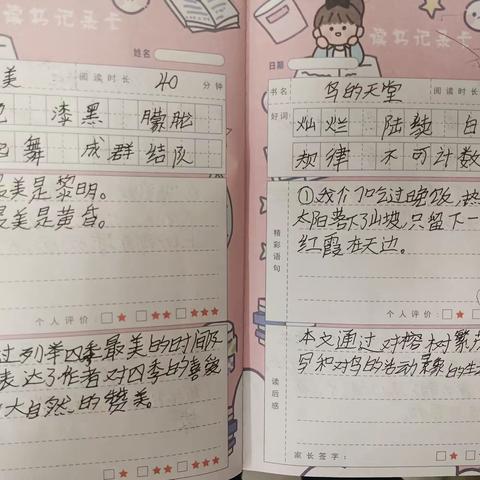 姓名
美 阅读时长 40 分钟
漆黑 朦胧
舞 成群结队
最美是黎明。
最美是黄昏。
个人评价：
过列举四季最美的时间段
表达了作者对四季的喜爱
大自然的赞美。
读书记录卡
日期
书名 鸟的天堂 阅读时
好词 灿烂 陆续 白
规律 不可计数
精彩语句
①我们吃过晚饭，热
太阳落下了山坡，只留下一
红霞在天边。
个人评价：
读后感
本文通过对榕树繁茂
写和对鸟的活动景象的生
家长签字：